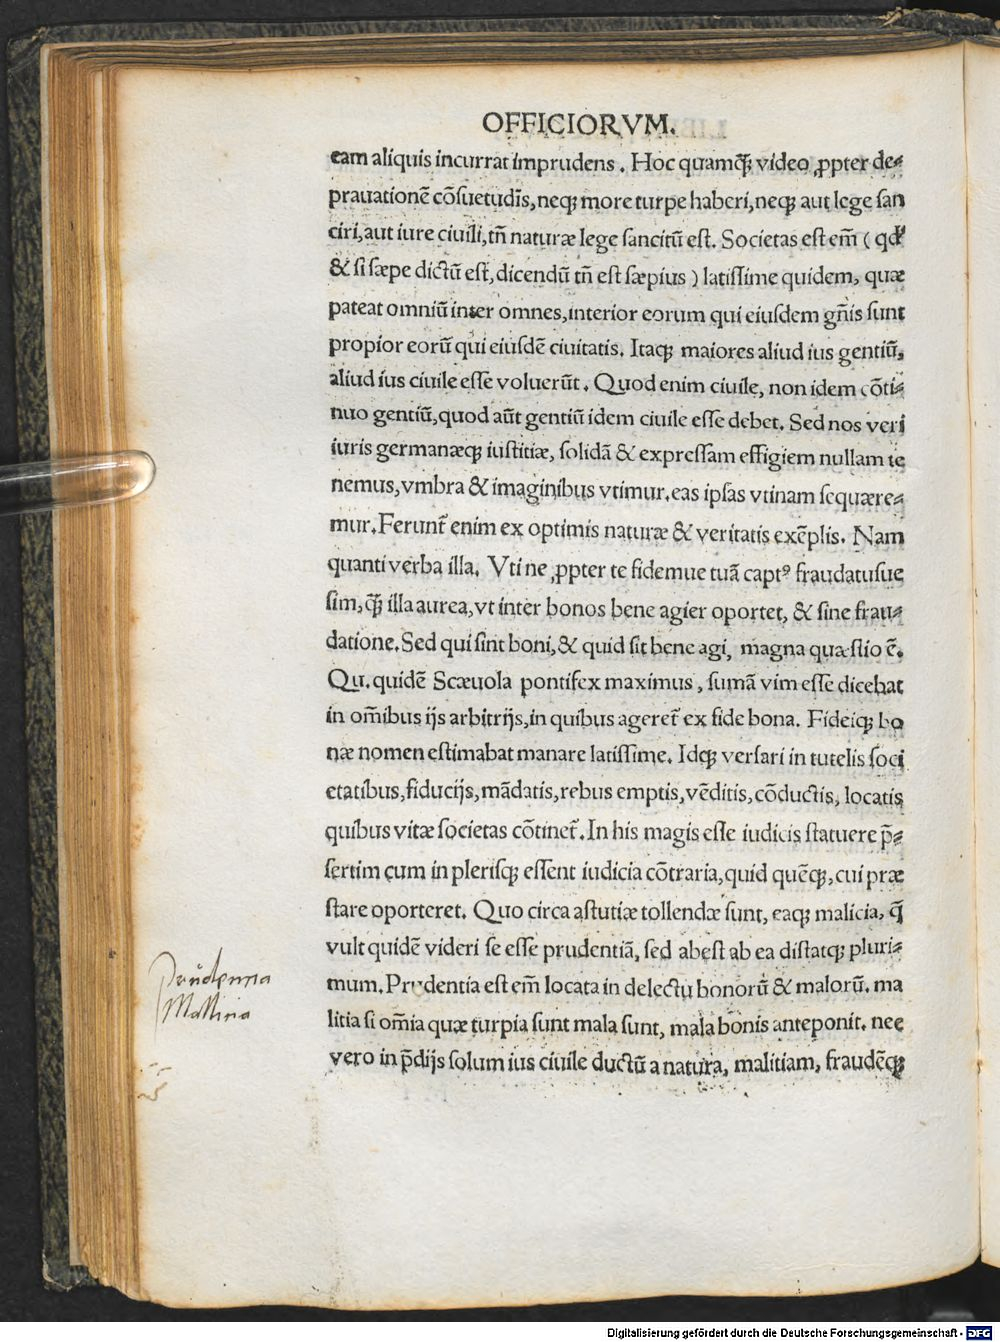 OFFICIORVM.
eam aliquis incurrat imprudens. Hoc quamq̃ꝫ video ꝓpter de⸗
prauationẽ cõſuetudĩs, neqꝫ more turpe haberi, neqꝫ aut lege ſan
ciri, aut iure ciuili, tñ naturæ lege ſancitũ eſt. Societas eſt em̃ ( qđ
& ſi ſæpe dictũ eſt, dicendũ tñ eſt ſæpius ) latiſſime quidem, quæ
pateat omniũ inter omnes, interior eorum qui eiuſdem gñis ſunt
propior eorũ qui eiuſdẽ ciuitatis. Itaqꝫ maiores aliud ius gentiũ,
aliud ius ciuile eſſe voluerũt. Quod enim ciuile, non idem cõti⸗
nuo gentiũ, quod aũt gentiũ idem ciuile eſſe debet. Sed nos veri
iuris germanæqꝫ iuſtitiæ, ſolidã & expreſſam effigiem nullam te
nemus, vmbra & imaginibus vtimur. eas ipſas vtinam ſequære⸗
mur. Ferunt̃ enim ex optimis naturæ & veritatis exẽplis. Nam
quanti verba illa. Vti ne ꝓpter te fidemue tuã captꝰ fraudatuſue
ſim, q̃ꝫ illa aurea, vt inter bonos bene agier oportet, & ſine frau⸗
datione. Sed qui ſint boni, & quid ſit bene agi, magna quæſtio ẽ.
Qu. quidẽ Scæuola pontifex maximus, ſumã vim eſſe dicebat
in om̃ibus ijs arbitrijs, in quibus ageret̃ ex fide bona. Fideiqꝫ bo
næ nomen eſtimabat manare latiſſime. Idqꝫ verſari in tutelis ſoci
etatibus, fiducijs, mãdatis, rebus emptis, vẽditis, cõductis, locatis
quibus vitæ ſocietas cõtinet̃. In his magis eſſe iudicis ſtatuere p̃⸗
ſertim cum in pleriſqꝫ eſſent iudicia cõtraria, quid quẽqꝫ, cui præ
ſtare oporteret. Quo circa aſtutiæ tollendæ ſunt, eaqꝫ malicia, q̃
vult quidẽ videri ſe eſſe prudentiã, ſed abeſt ab ea diſtatqꝫ pluri⸗
mum. Prudentia eſt em̃ locata in delectu bonorũ & malorũ. ma
litia ſi om̃ia quæ turpia ſunt mala ſunt, mala bonis anteponit. nec
vero in p̃dijs ſolum ius ciuile ductũ a natura, malitiam, fraudẽqꝫ
Prudentia
Mallitia
Digitalisierung gefördert durch die Deutsche Forschungsgemeinschaft - DFG